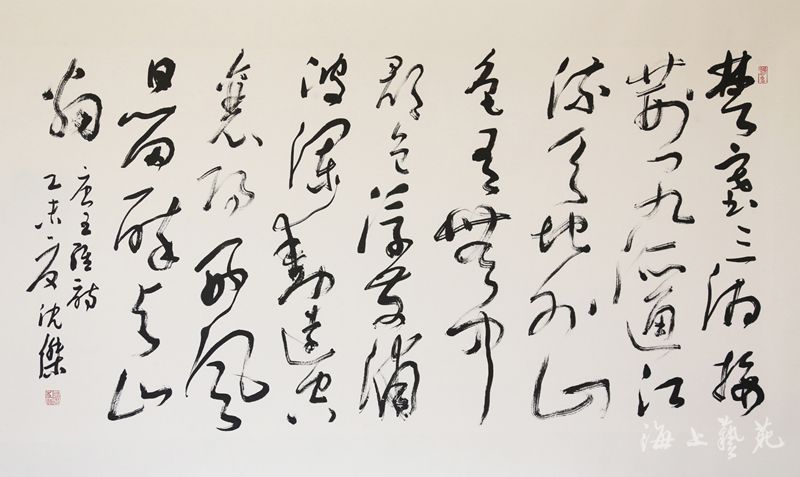 楚塞三湘接
荊門九派通江
流天地外山
色有無中
郡邑浮前浦
波瀾動遠空
襄陽好風
日留醉與山
翁
唐王維詩
乙未夏沈傑
海上藝苑